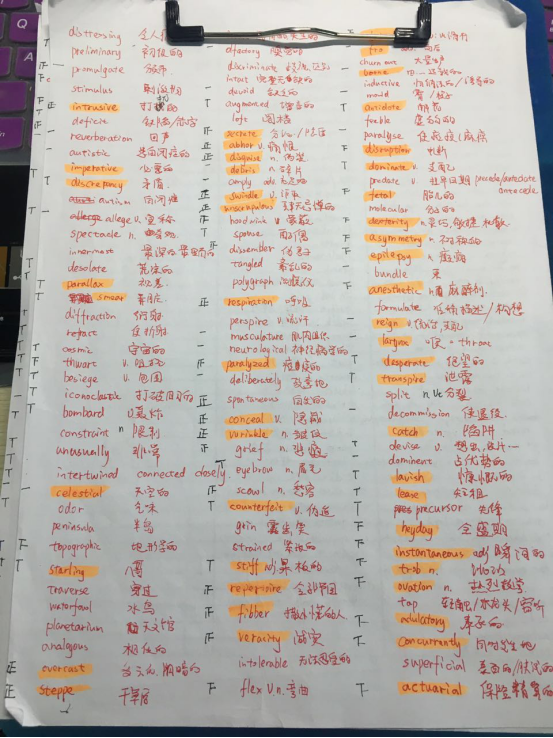 distressing 令人
preliminary 初级的
promulgate 颁布
stimulus 刺激物
intrusive 打扰的
deficit 缺陷/
reverberation 回声
autistic 患自闭症的
imperative 必要的
discrepancy 矛盾
autism 自闭症
allege v. 宣称
spectacle n.
innermost 最深的
desolate 荒凉的
parallax 视差
smear 弄脏
diffraction 衍射
refract 使折射
cosmic 宇宙的
thwart v. 阻止
besiege v. 包围
iconoclastic 打破旧习的
bombard v.
constraint n 限制
unusually 非常
intertwined connected closely
celestial 天空的
odor 气味
peninsula 半岛
topographic 地形学的
starling 八哥
traverse 穿过
waterfowl 水鸟
planetarium 天文馆
analogous 相似的
overcast 多云的 阴暗的
steppe 干草原
olfactory 嗅觉的
discriminate
intact
devoid 缺乏的
augmented 增高的
loft 阁楼
secrete 分泌/隐藏
abhor v. 憎恨
disguise n. 伪装
debris n. 碎片
amply adv. 充足的
swindle v. 
unscrupulous
hoodwink v 蒙骗
spouse 配偶
dissembler 伪君子
tangled 紊乱的
polygraph 测谎仪
respiration 呼吸
perspire v. 出汗
musculature 肌肉组织
neurological 神经病学的
paralyzed 瘫痪的
deliberately 故意地
spontaneous 自发的
conceal v. 隐藏
wrinkle n. 皱纹
grief n. 悲痛
eyebrow n. 眉毛
scowl n. 怒容
counterfeit v. 伪造
grin 露齿笑
strained 紧张的
stiff adj 呆板的
repertoire 全部节目
fibber 撒小谎的人
veracity 诚实
intolerable 无法忍受的
flex v n. 弯曲
inductive
mould
antidote 解药
feeble 虚弱的
paralyse 使瘫痪/麻痹
disruption 中断
dominate v. 支配
predate v. 
antecede
fetal 胎儿的
molecular 分子的
dexterity n. 灵巧, 敏捷
asymmetry n. 不对称的
epilepsy n. 癫痫
bundle 束
anesthetic n 麻醉剂.
formulate
reign v 统治, 支配
larynx "喉" = throat
desperate 绝望的
transpire 泄露
split n vt 分裂
decommission 使退役
catch n. 陷阱
devise v. 想出, 设计…
dominant 占优势的
lavish 慷慨的
lease n. 出租
precursor 先锋
heyday 全盛期
instantaneous adj 瞬间的
ovation n. 热烈鼓掌
tap
adulatory 奉承的
concurrently 同时发生地
superficial 表面的/肤浅的
actuarial 保险精算的